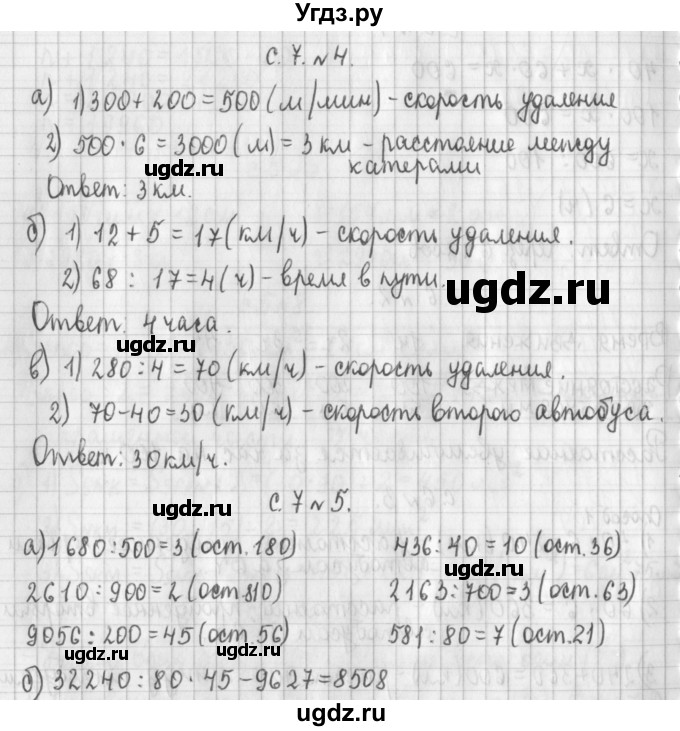 Угдз.ру
с. 7. № 4.
а) 1) 300 + 200 = 500 (м/мин) - скорость удаления
2) 500 · 6 = 3000 (м) = 3 км - расстояние между
ugdz.ru катерами ugdz.ru
Ответ: 3 км.
б) 1) 12 + 5 = 17 (км/ч) - скорость удаления.
2) 68 : 17 = 4 (ч) - время в пути.
ugdz.ru
Ответ: 4 часа.
ugdz.ru
в) 1) 280 : 4 = 70 (км/ч) - скорость удаления.
2) 70 - 40 = 30 (км/ч) - скорость второго автобуса.
Ответ: 30 км/ч.
с. 7 № 5.
ugdz.ru
а) 1680 : 500 = 3 (ост. 180) 436 : 40 = 10 (ост. 36)
ugdz.ru
2610 : 900 = 2 (ост. 810) 2163 : 700 = 3 (ост. 63)
9056 : 200 = 45 (ост. 56) 581 : 80 = 7 (ост. 21)
ugdz.ru
б) 32240 : 80 · 45 - 9627 = 8508
ugdz.ru